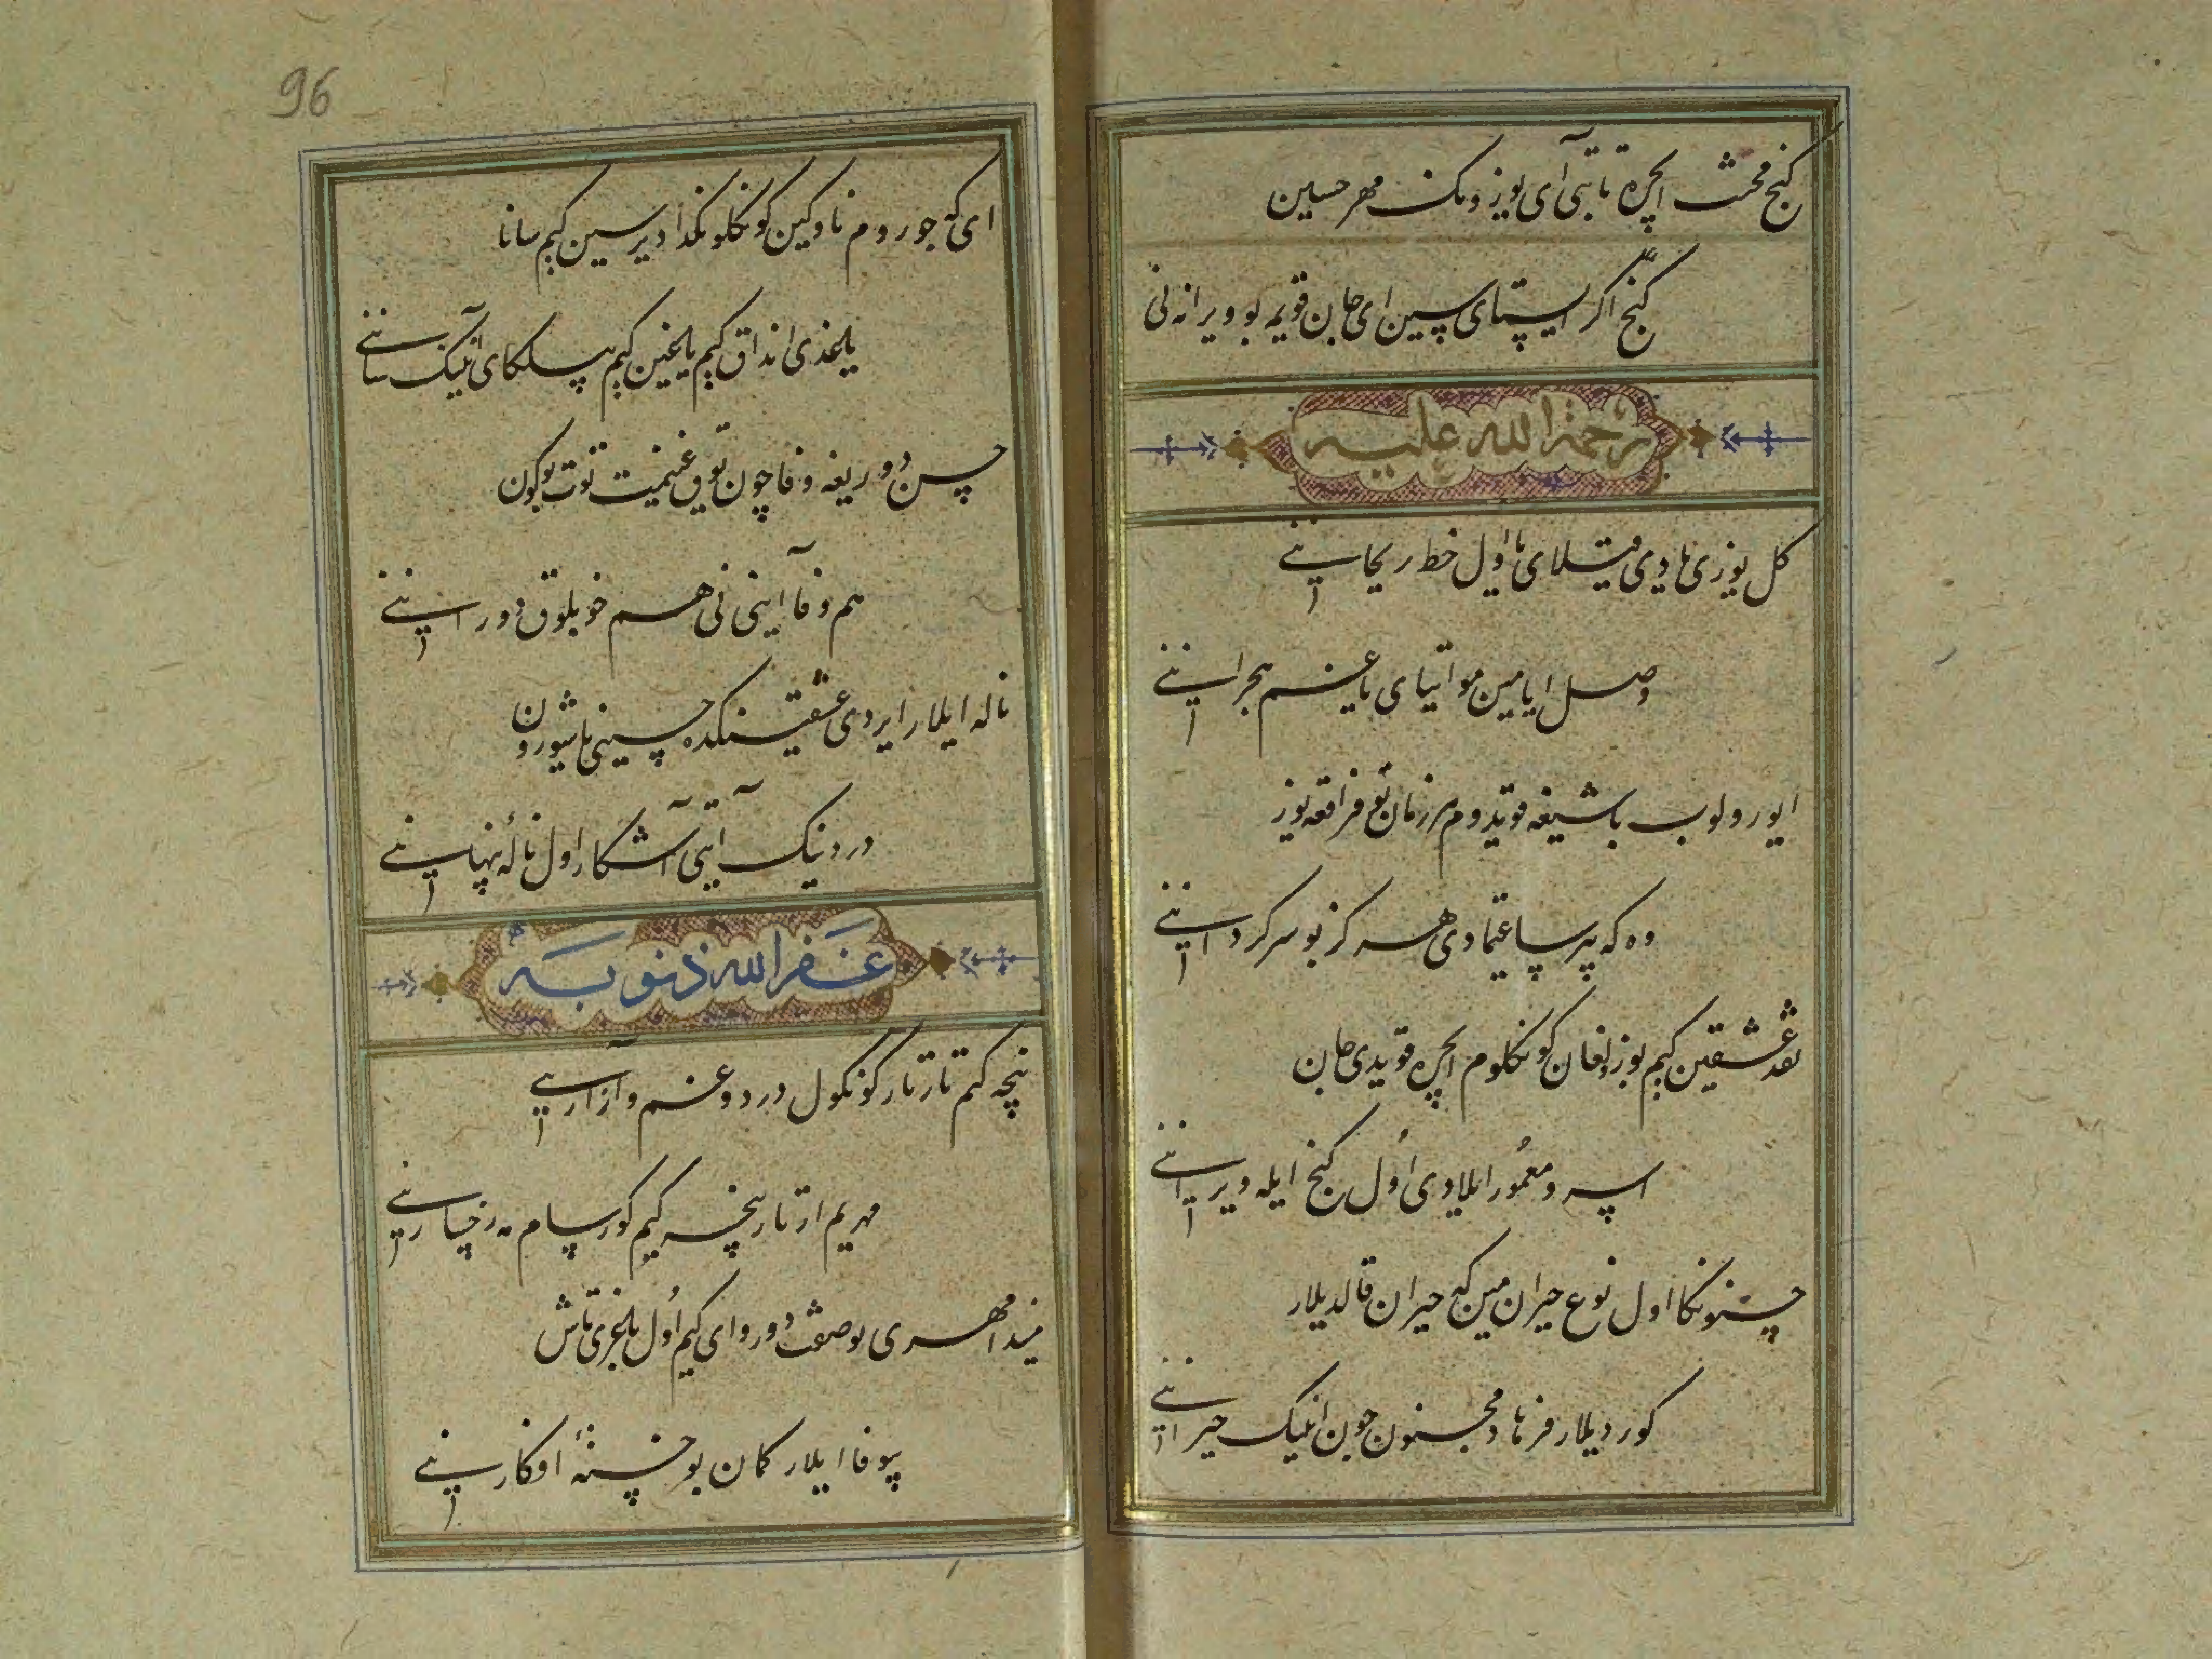 کنج محنت ایچره تابتی آی یوزونک مهر حسین
کنج اگر ایستای سین ای جان قویمه بو ویرانه نی
رحمة الله علیه
کل یوزی یادی میتلای یا اول خط ریحانینی
وصل ایامین مو ایتای یا غم هجرانینی
ایورولوب باشیغه قویدوم هر زمان تیغ فراقغه یوز
وه که بیر ساغینمادی هرگز بو سرگردانینی
نقد عشقین کیم بوزولغان کونکلوم ایچره قویدی جان
اسرو معمور ایلادی اول کنج ایله ویرانینی
حسنونکا اول نوع حیران مین که حیران قالدیلار
کوردیلار فرهاد و مجنون چون انینک حیرانینی
96
ای که جوروم ناوکین کونکلونکدا دیرسین کیم سانا
یاغدی انداق کیم یاغین کیم بیلکای انینک سانینی
حسن دوریغه وفا چون یوق غنیمت توت بوکون
هم وفا آیینی نی هم خوبلوق دورانینی
ناله ایلار ایردی عشقینکده حسینی یاشورون
دردینک ایتی آشکار اول نالهٔ پنهانینی
غفر الله ذنوبه
نیچه کیم تارتار کونکول درد و غم و آزارینی
مهریم ارتار نیچه کیم کورسام مه رخسارینی
میندا مهری بو صفت دور وای کیم اول باغری تاش
بیوفا ایلار کمان بو خستهٔ افکارینی